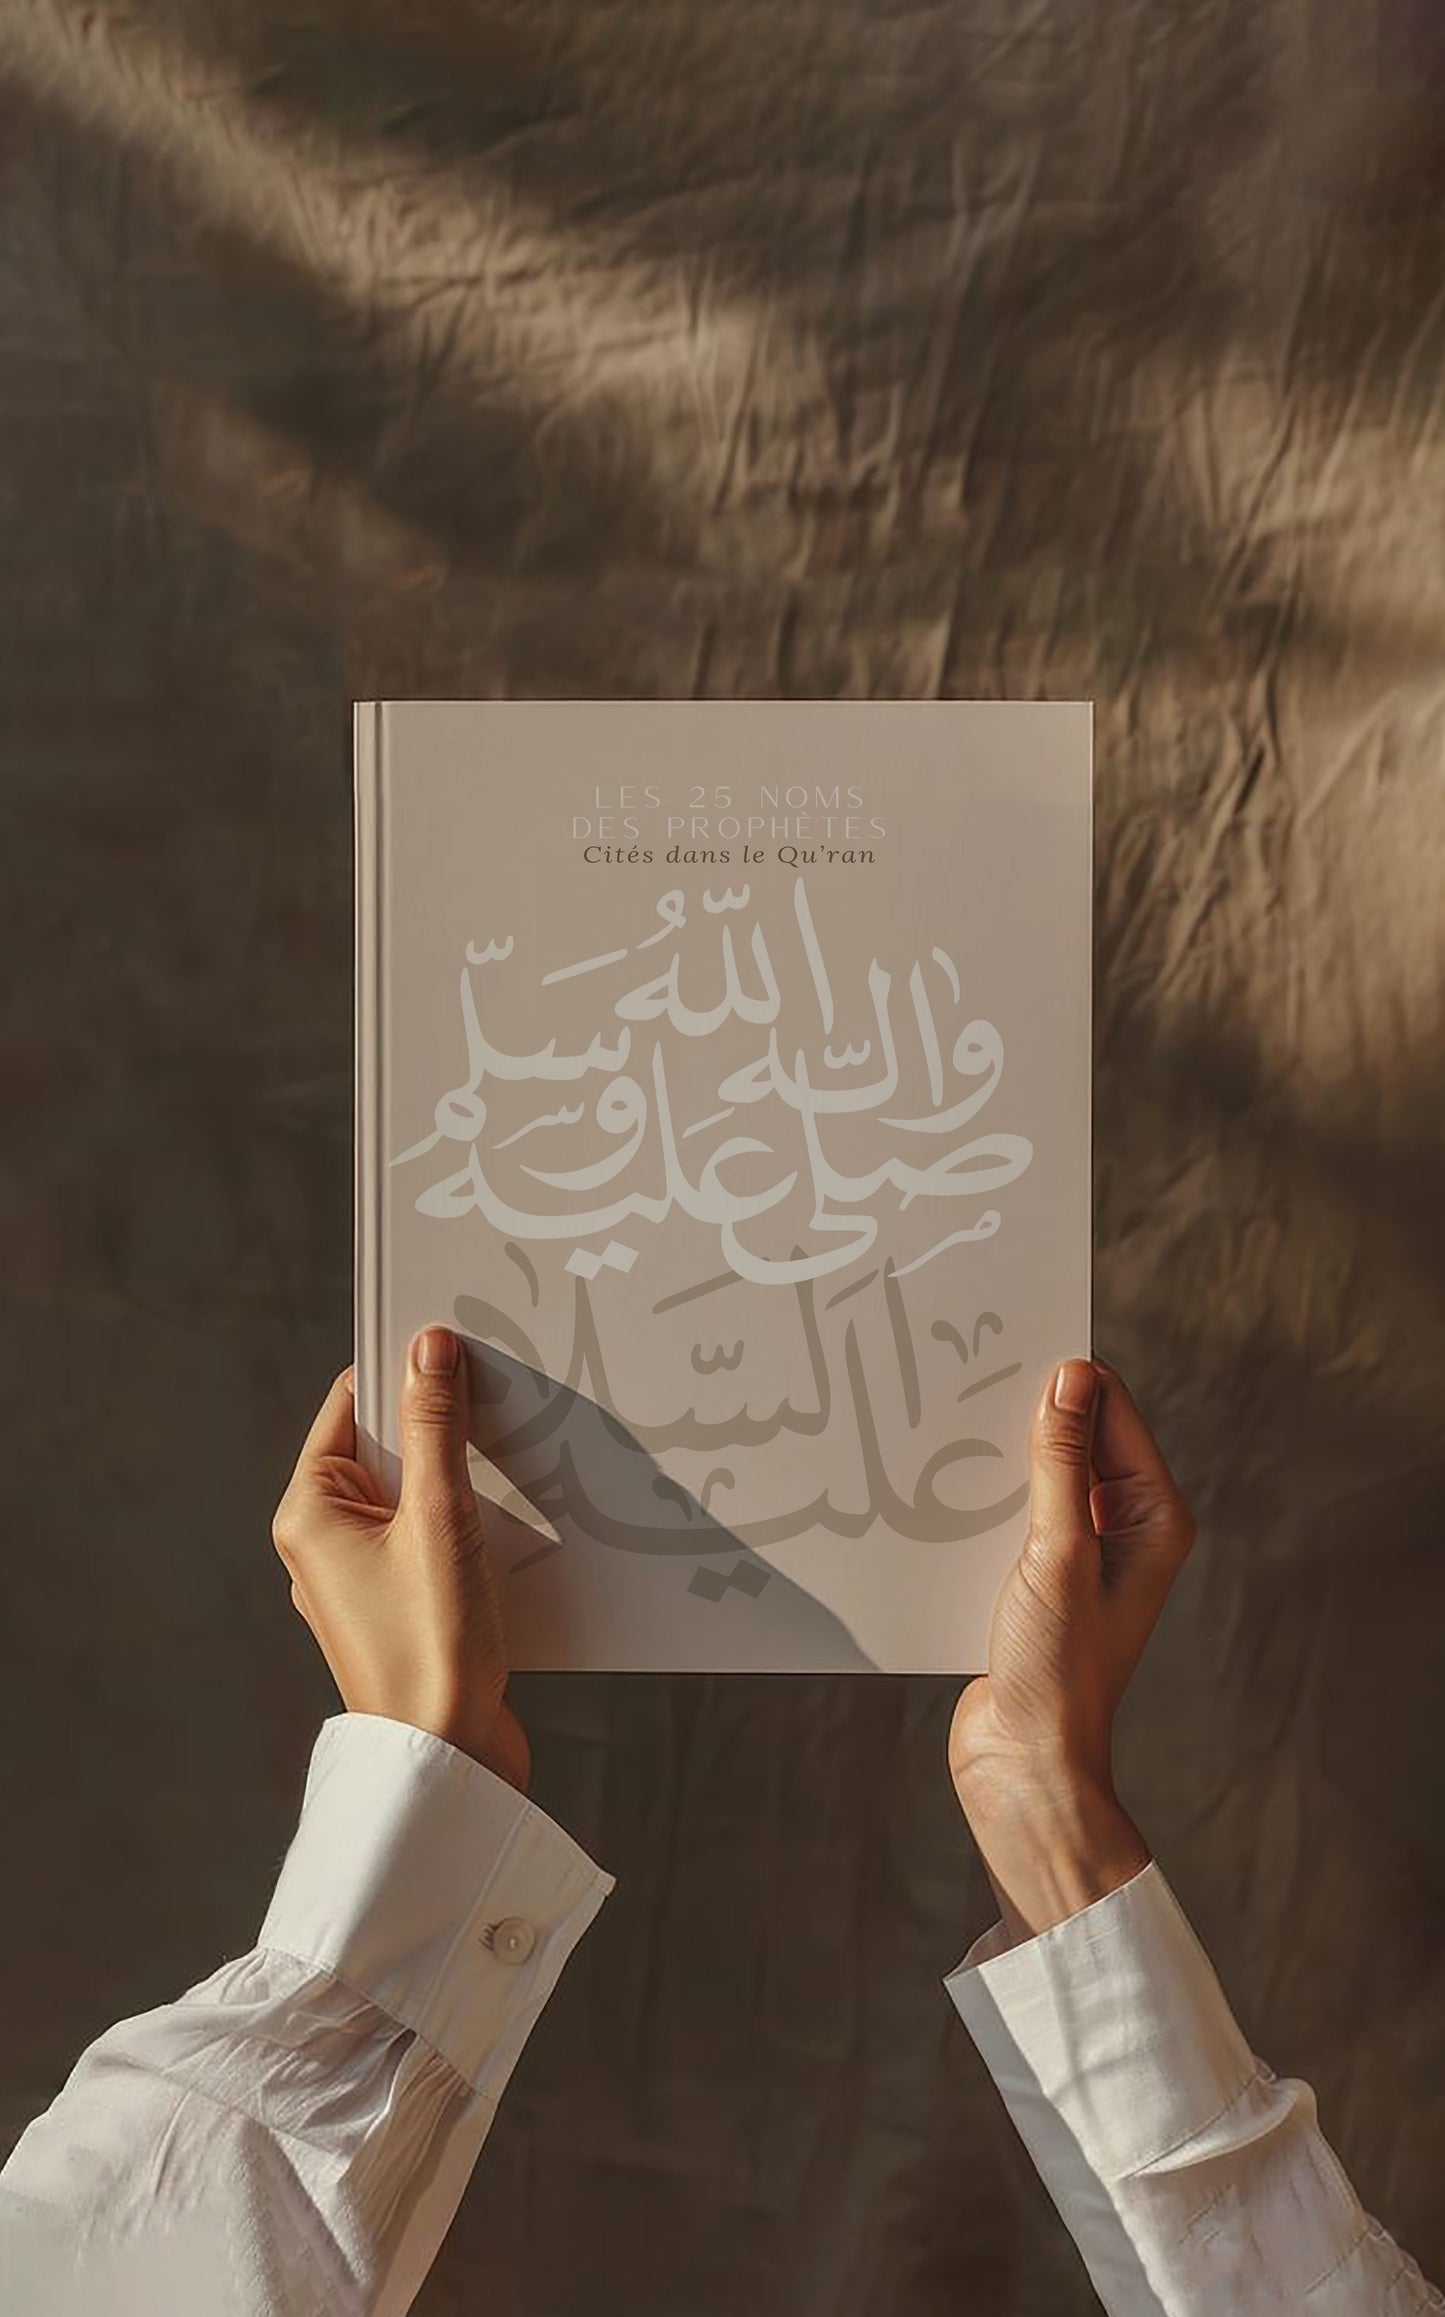 LES 25 NOMS
DES PROPHÈTES
Cités dans le Qu'ran
صلى الله عليه وآله وسلم
عليه السلام